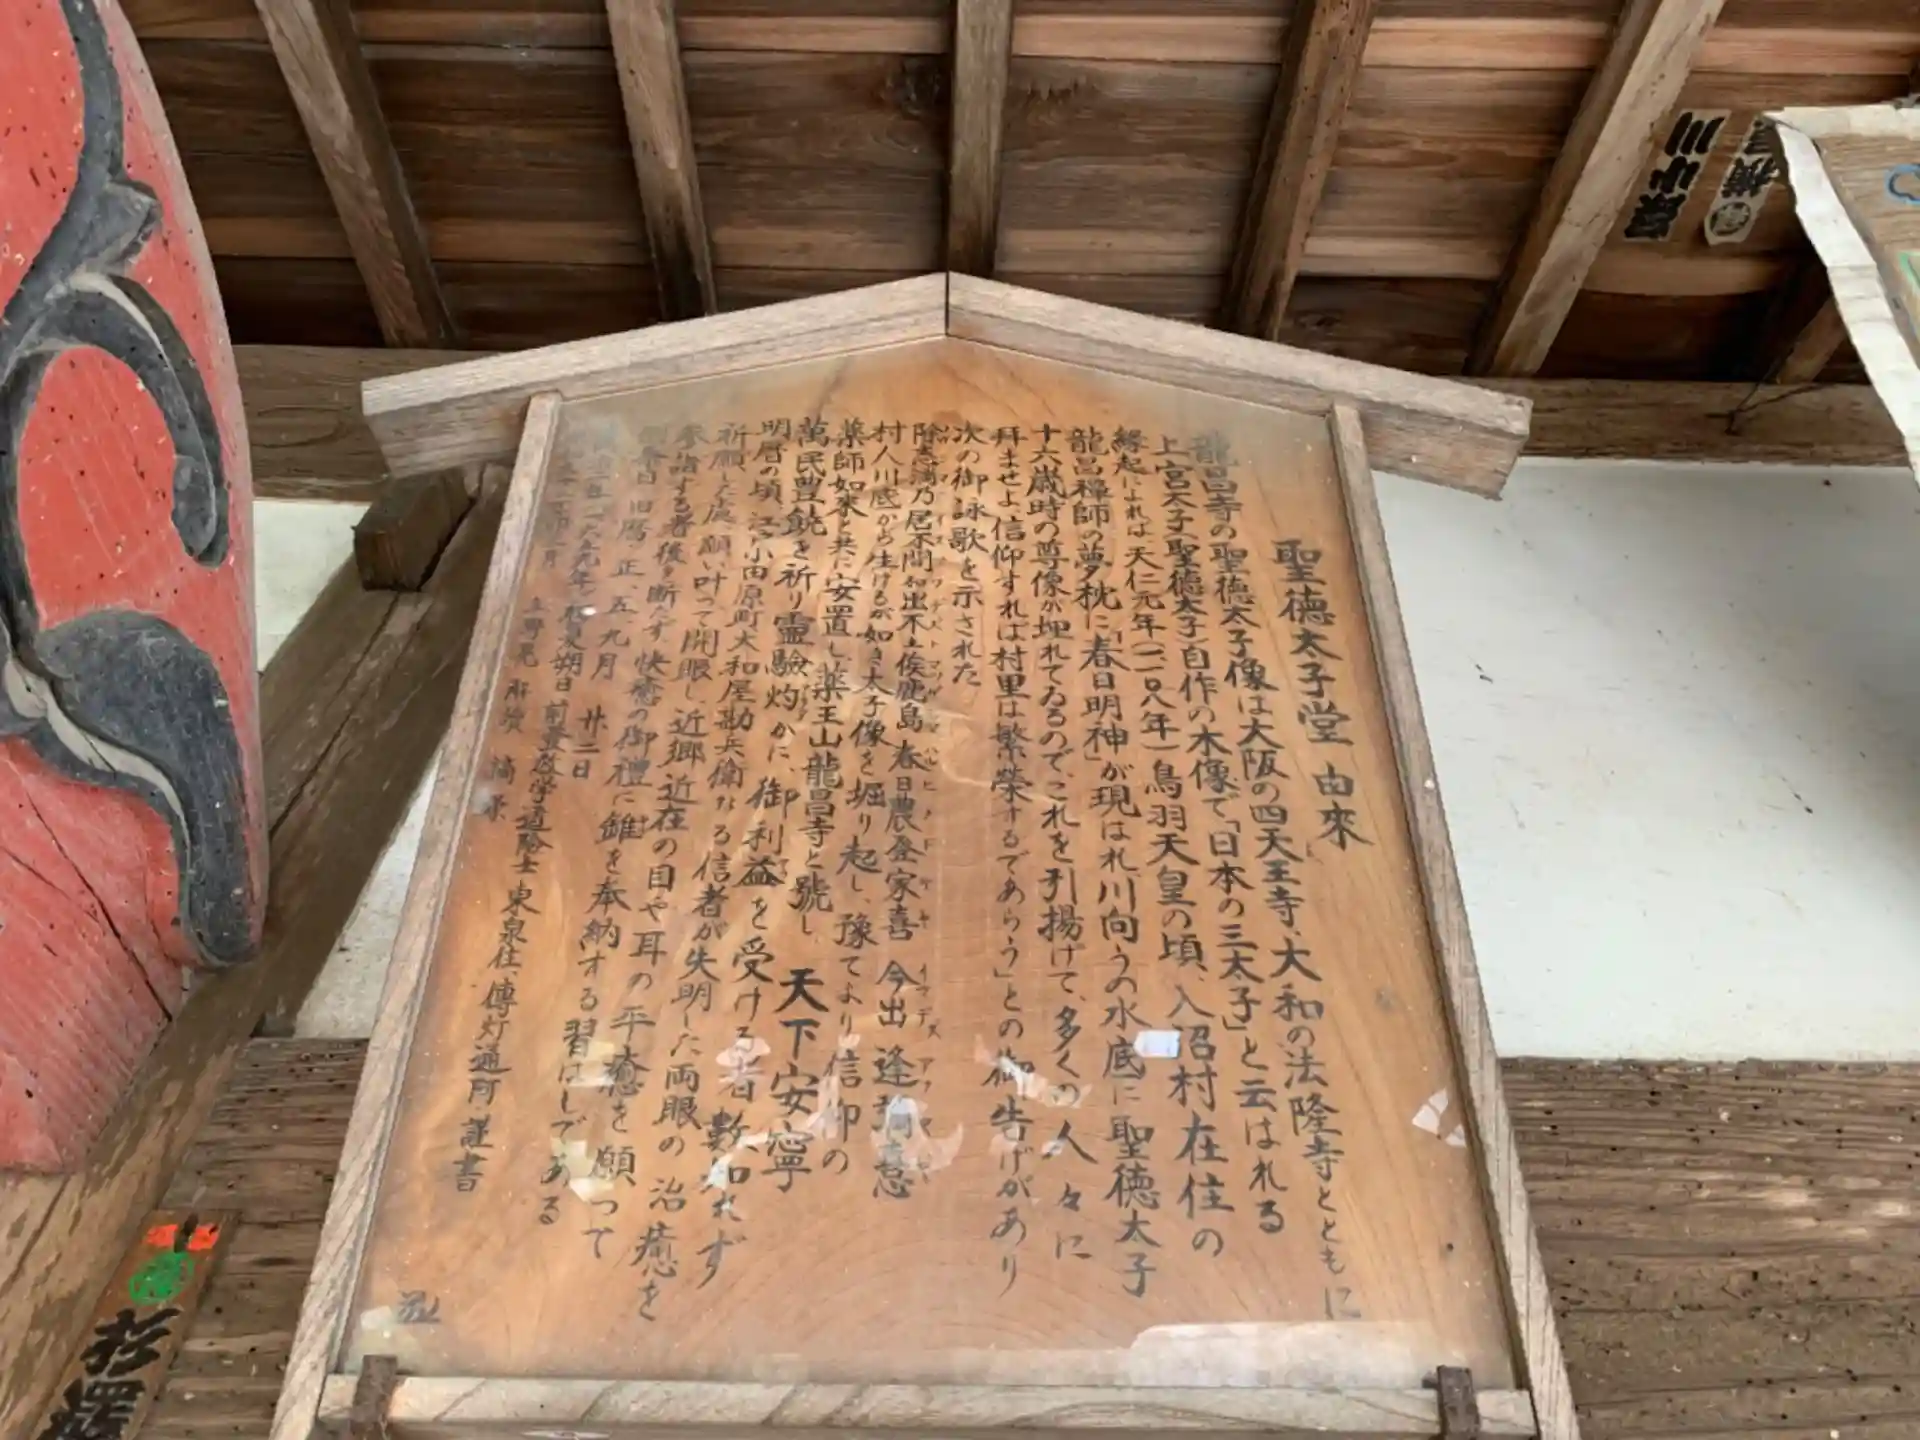 聖徳太子堂 由來
龍昌寺の聖徳太子像は大阪の四天王寺、大和の法隆寺とともに
上宮太子(聖徳太子)自作の木像で「日本の三太子」と云はれる
縁起によれは天仁元年(一一〇八年)鳥羽天皇の頃、入沼村在住の
龍昌禅師の夢枕に「春日明神」が現はれ川向うの水底に聖徳太子
十六歳時の尊像が埋れてゐるので、これを引揚げて、多くの人々に
拝ませよ信仰すれば村里は繁榮するであらう」との御告げがあり
次の御詠歌を示された
乃居不聞 出不土俟鹿島 春日農登家喜 今出 逢
村人川底から生けるが如き太子像を堀り起し、豫てより信仰の
薬師如来と共に安置し、薬王山龍昌寺と號し 天下安寧
萬民豊饒を祈り霊驗灼かに、御利益を受ける者數知れず
明暦の頃、江戸小田原町大和屋勘兵衛なる信者が失明した両眼の治癒を
祈願した處願い叶って開眼し、近郷近在の目や耳の平癒を願って
参詣する者後を断たず、快癒の御禮に錐を奉納する習はしである
日 旧暦 正、五、九月 廿二日
元年 朔日 東泉住、傳灯 謹書